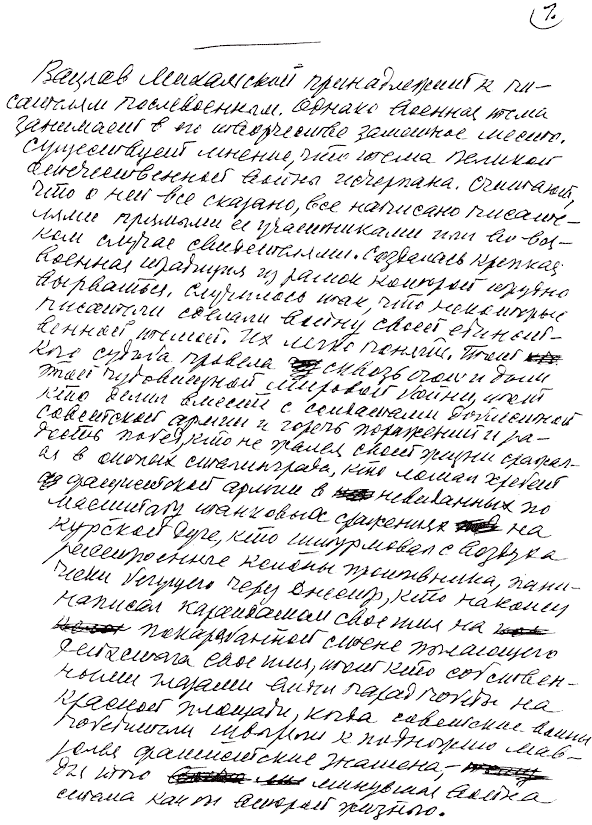 1.
Вацлав Михальский принадлежит к пи-
сателям послевоенным. Однако военная тема
занимает в его творчестве заметное место.
Существует мнение, что тема Великой
Отечественной войны исчерпана. Считают,
что о ней все сказано, все написано писате-
лями прямыми ее участниками или во вся-
ком случае свидетелями. Создалась крепкая
военная традиция из рамок которой трудно
вырваться. Случилось так, что некоторые
писатели сделали войну своей единст-
венной темой. Их легко понять. Тот
кого судьба провела сквозь огонь и дым
той чудовищной мировой войны, тот
кто делил вместе с солдатами
советской армии и горечь поражений и ра-
дость побед, кто не жалея своей жизни сражал-
ся в окопах Сталинграда, кто ломал хребет
фашистской армии в невиданных по
масштабу танковых сражениях на
Курской дуге, кто штурмовал с воздуха
колонны противника, пани-
чески бегущего через Днепр, кто наконец
написал карандашом свое имя на
стене пылающего
Рейхстага свое имя, тот кто собствен-
ными глазами видел парад победы на
Красной площади, когда советские воины
победители швыряли к подножию Мав-
золея фашистские знамена, –
для того минувшая война
стала как бы второй жизнью.